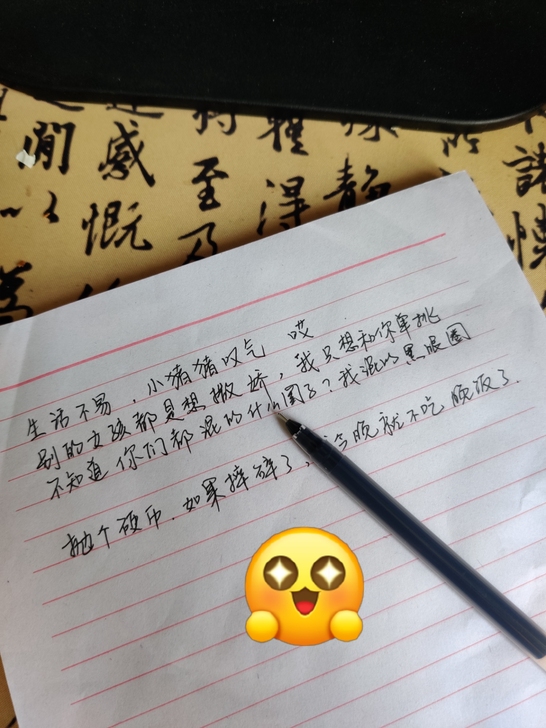 生活不易，小猪猪叹气 哎
别的女孩都是想撒娇，我只想和你单挑
不知道你们都混的什么圈子？我混的黑眼圈
抛个硬币，如果摔碎了，今晚就不吃晚饭了．
閒
感
慨
至
及
得
静
諸